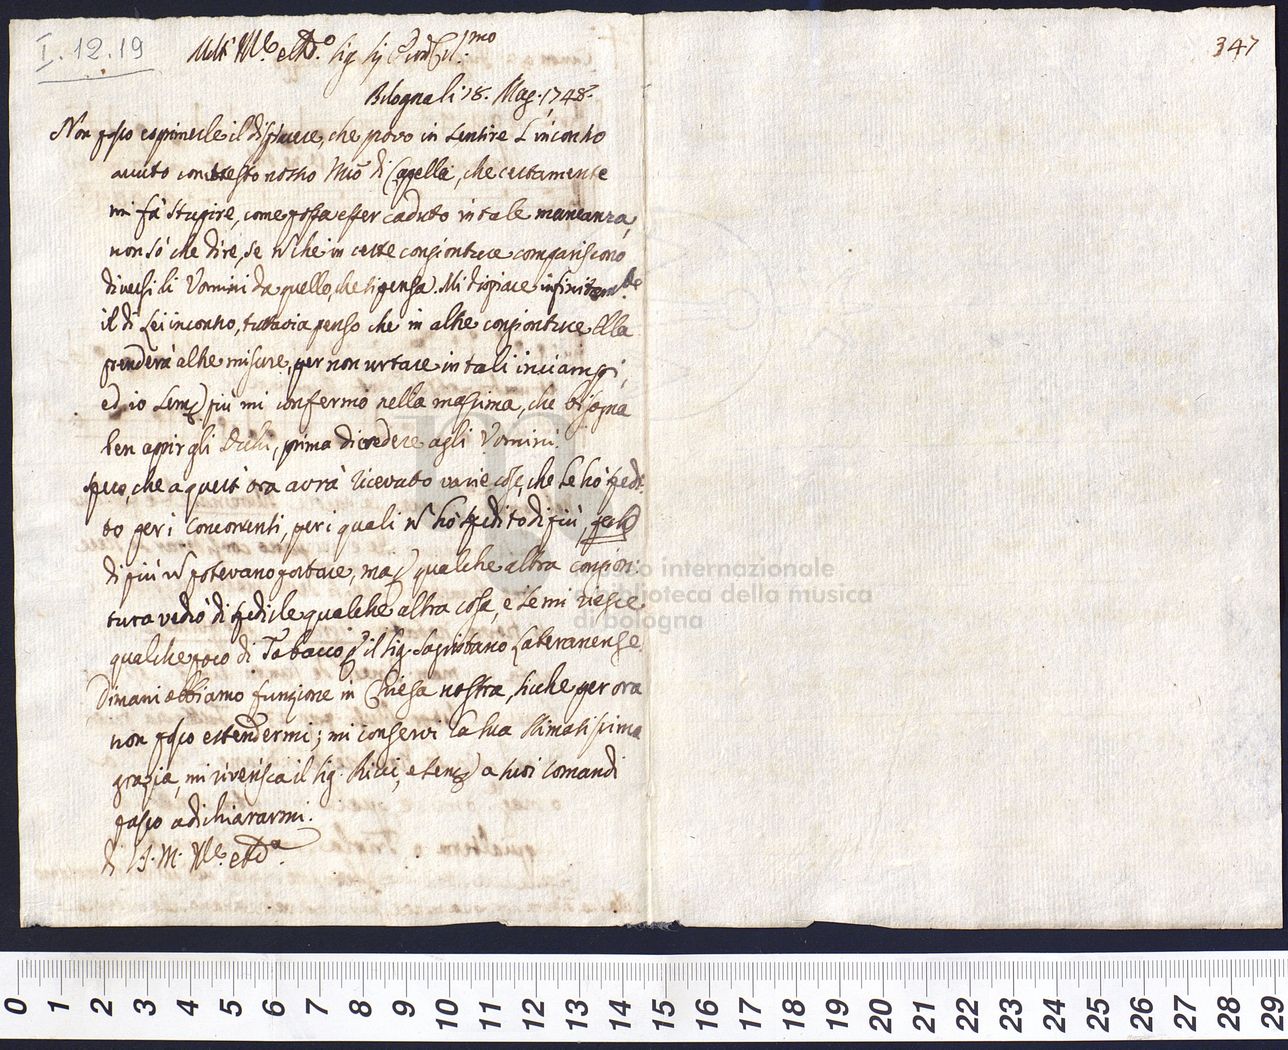 I.12.19
347
Molt' Ill.e e Rdo. Sig Sig
Bologna li 18. Mag. 1748.
Non posso esprimerle il dispiacere, che provo in sentire l'incontro
avuto con cotesto nostro Mro di Capella, che certamente
mi fà stupire, come possa esser caduto in tale mancanza,
non sò che dire, se n che in certe congionture compariscono
diversi li Uomini da quello, che si pensa. Mi dispiace infinitam.te
il di Lei incontro, tuttavia penso che in altre congionture Ella
prenderà altre misure, per non urtare in tali inciampi,
ed io semp più mi confermo nella massima, che bisogna
ben apprir gli Occhi, prima di credere agli Uomini.
Spero, che a quest' ora avrà ricevuto varie cose, che le hò spedi-
to per i Concorrenti, per i quali n hò spedito di più,
di più n potevano portare, ma p qualche altra congion-
tura vedrò di spedirle qualche altra cosa, e se mi riesce
qualche poco di Tabacco p il Sig. Sagristano Lateranense.
Dimani abbiamo funzione in Chiesa nostra, sicche per ora
non posso estendermi; mi conservi la sua stimatissima
grazia, mi riverisca il Sig. Ricci, e semp a suoi comandi
passo a dichiararmi.
di V. S. M. Ill.e e Rda.
museo internazionale
e biblioteca della musica
di bologna
0 1 2 3 4 5 6 7 8 9 10 11 12 13 14 15 16 17 18 19 20 21 22 23 24 25 26 27 28 29